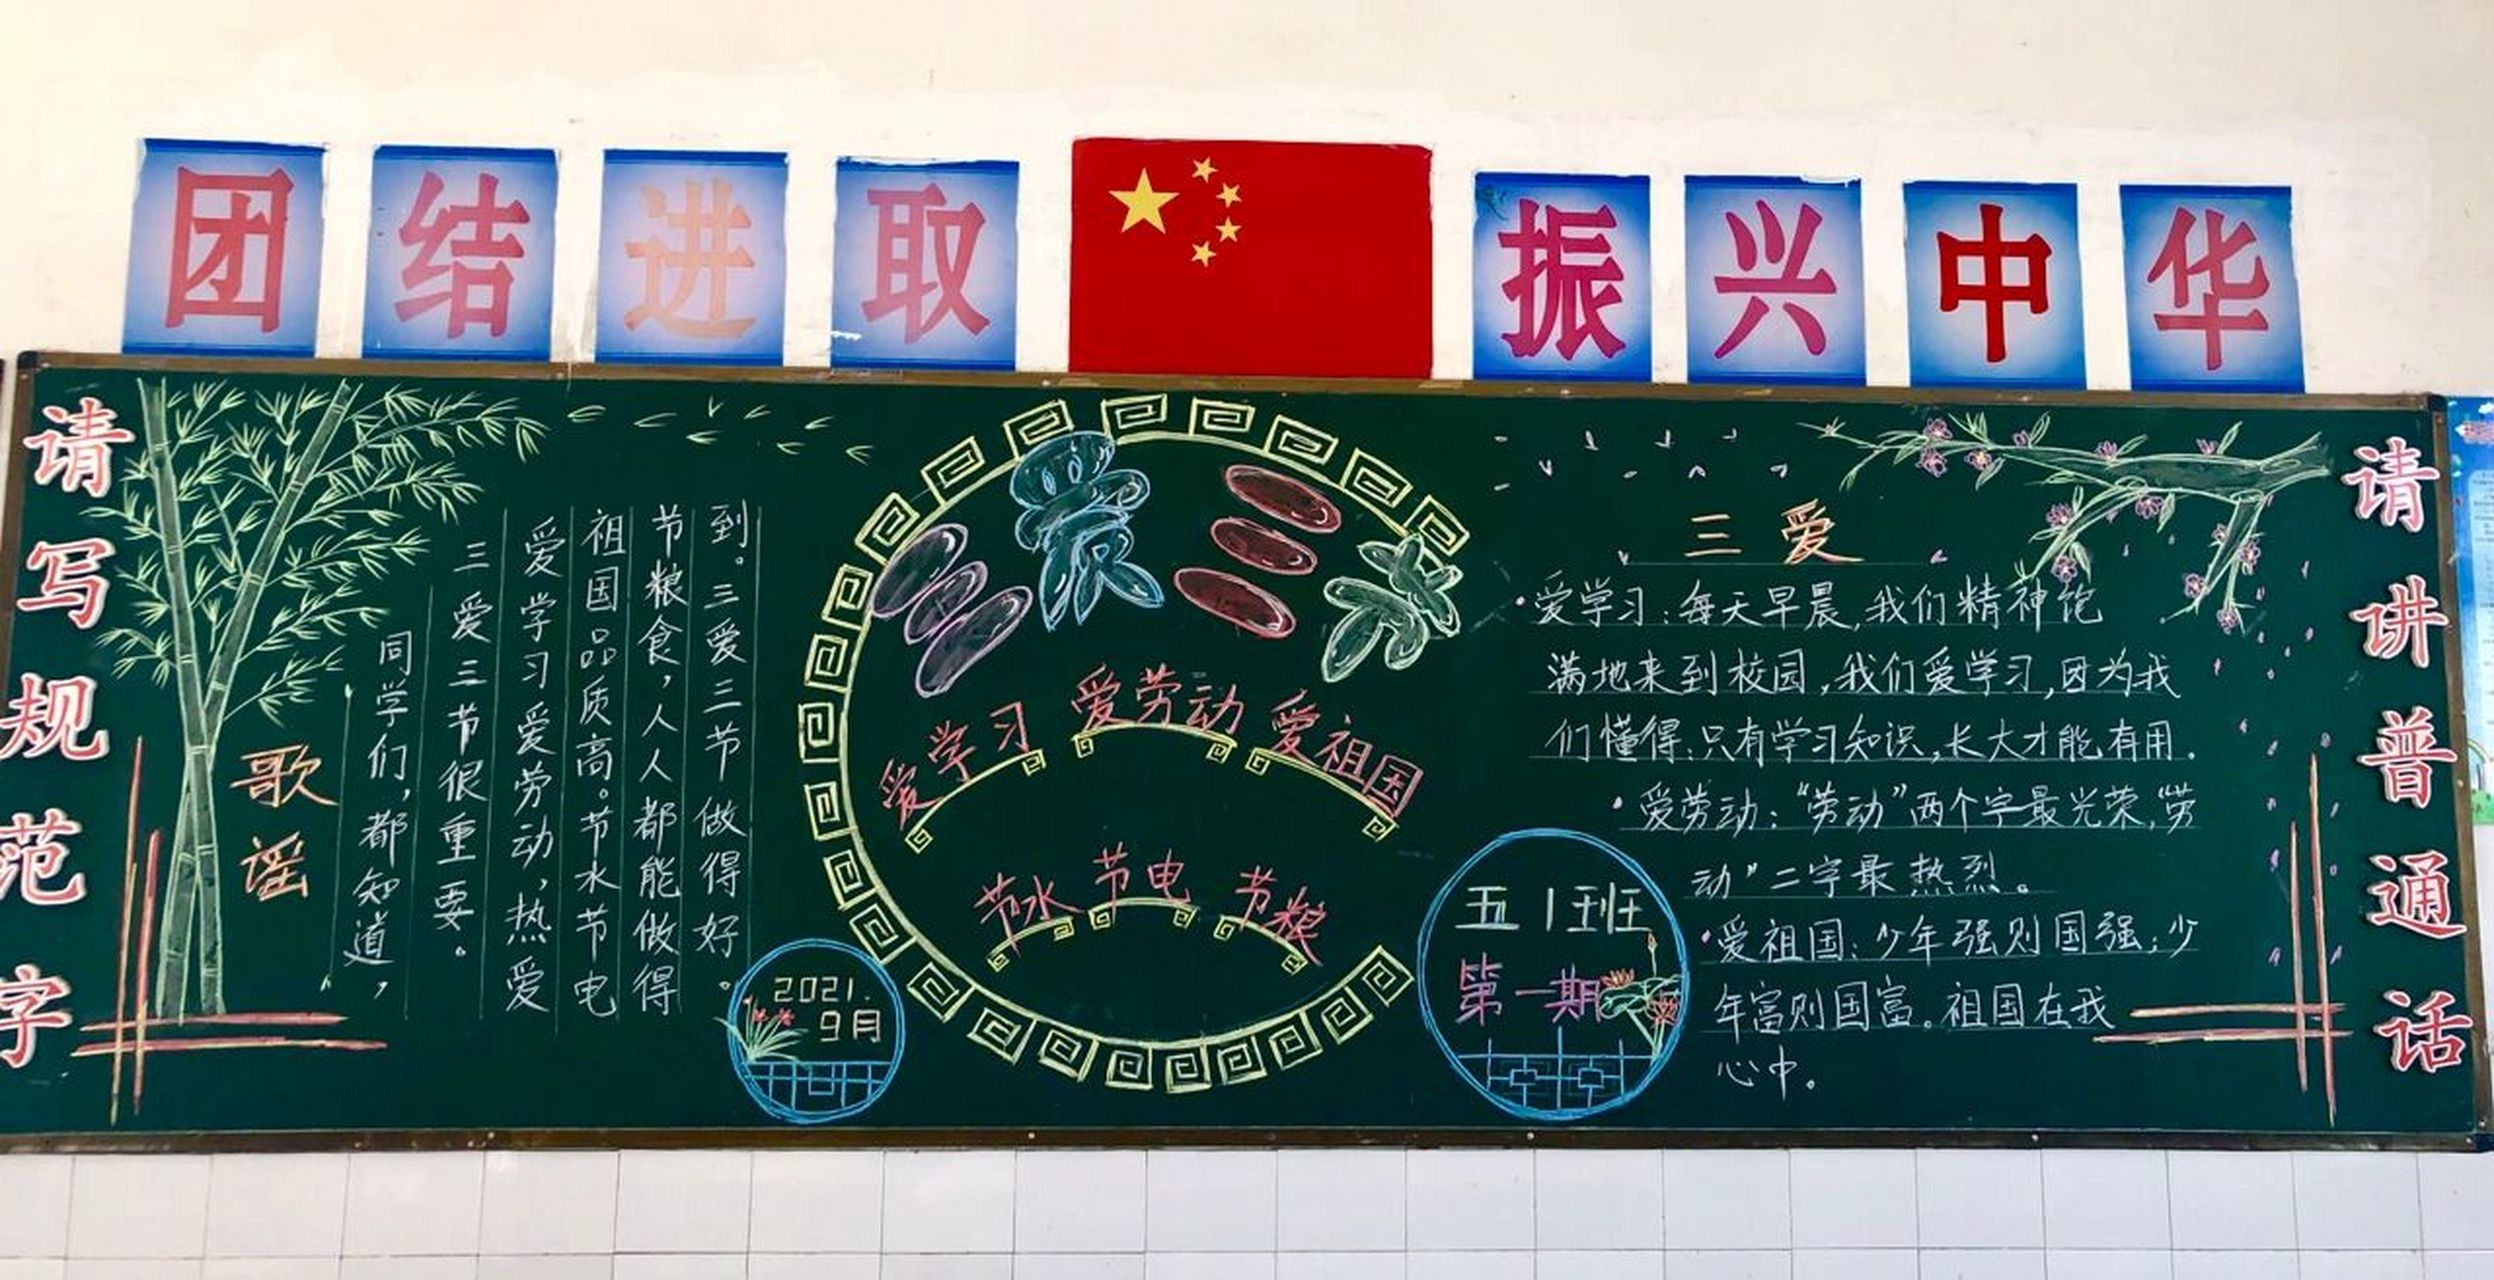 团结进取
振兴中华
请写规范字
歌谣
同学们，都知道，
三爱三节很重要。
爱学习爱劳动，热爱
祖国品质高。节水节电
节粮食，人人都能做得
到。三爱三节做得好。
2021.
9月
三爱三节
爱学习 爱劳动 爱祖国
节水 节电 节粮
五1班
第一期
三爱
·爱学习：每天早晨，我们精神饱
满地来到校园，我们爱学习，因为我
们懂得：只有学习知识，长大才能有用.
·爱劳动：“劳动”两个字最光荣，“劳
动”二字最热烈。
·爱祖国：少年强则国强；少
年富则国富。祖国在我
心中。
请讲普通话